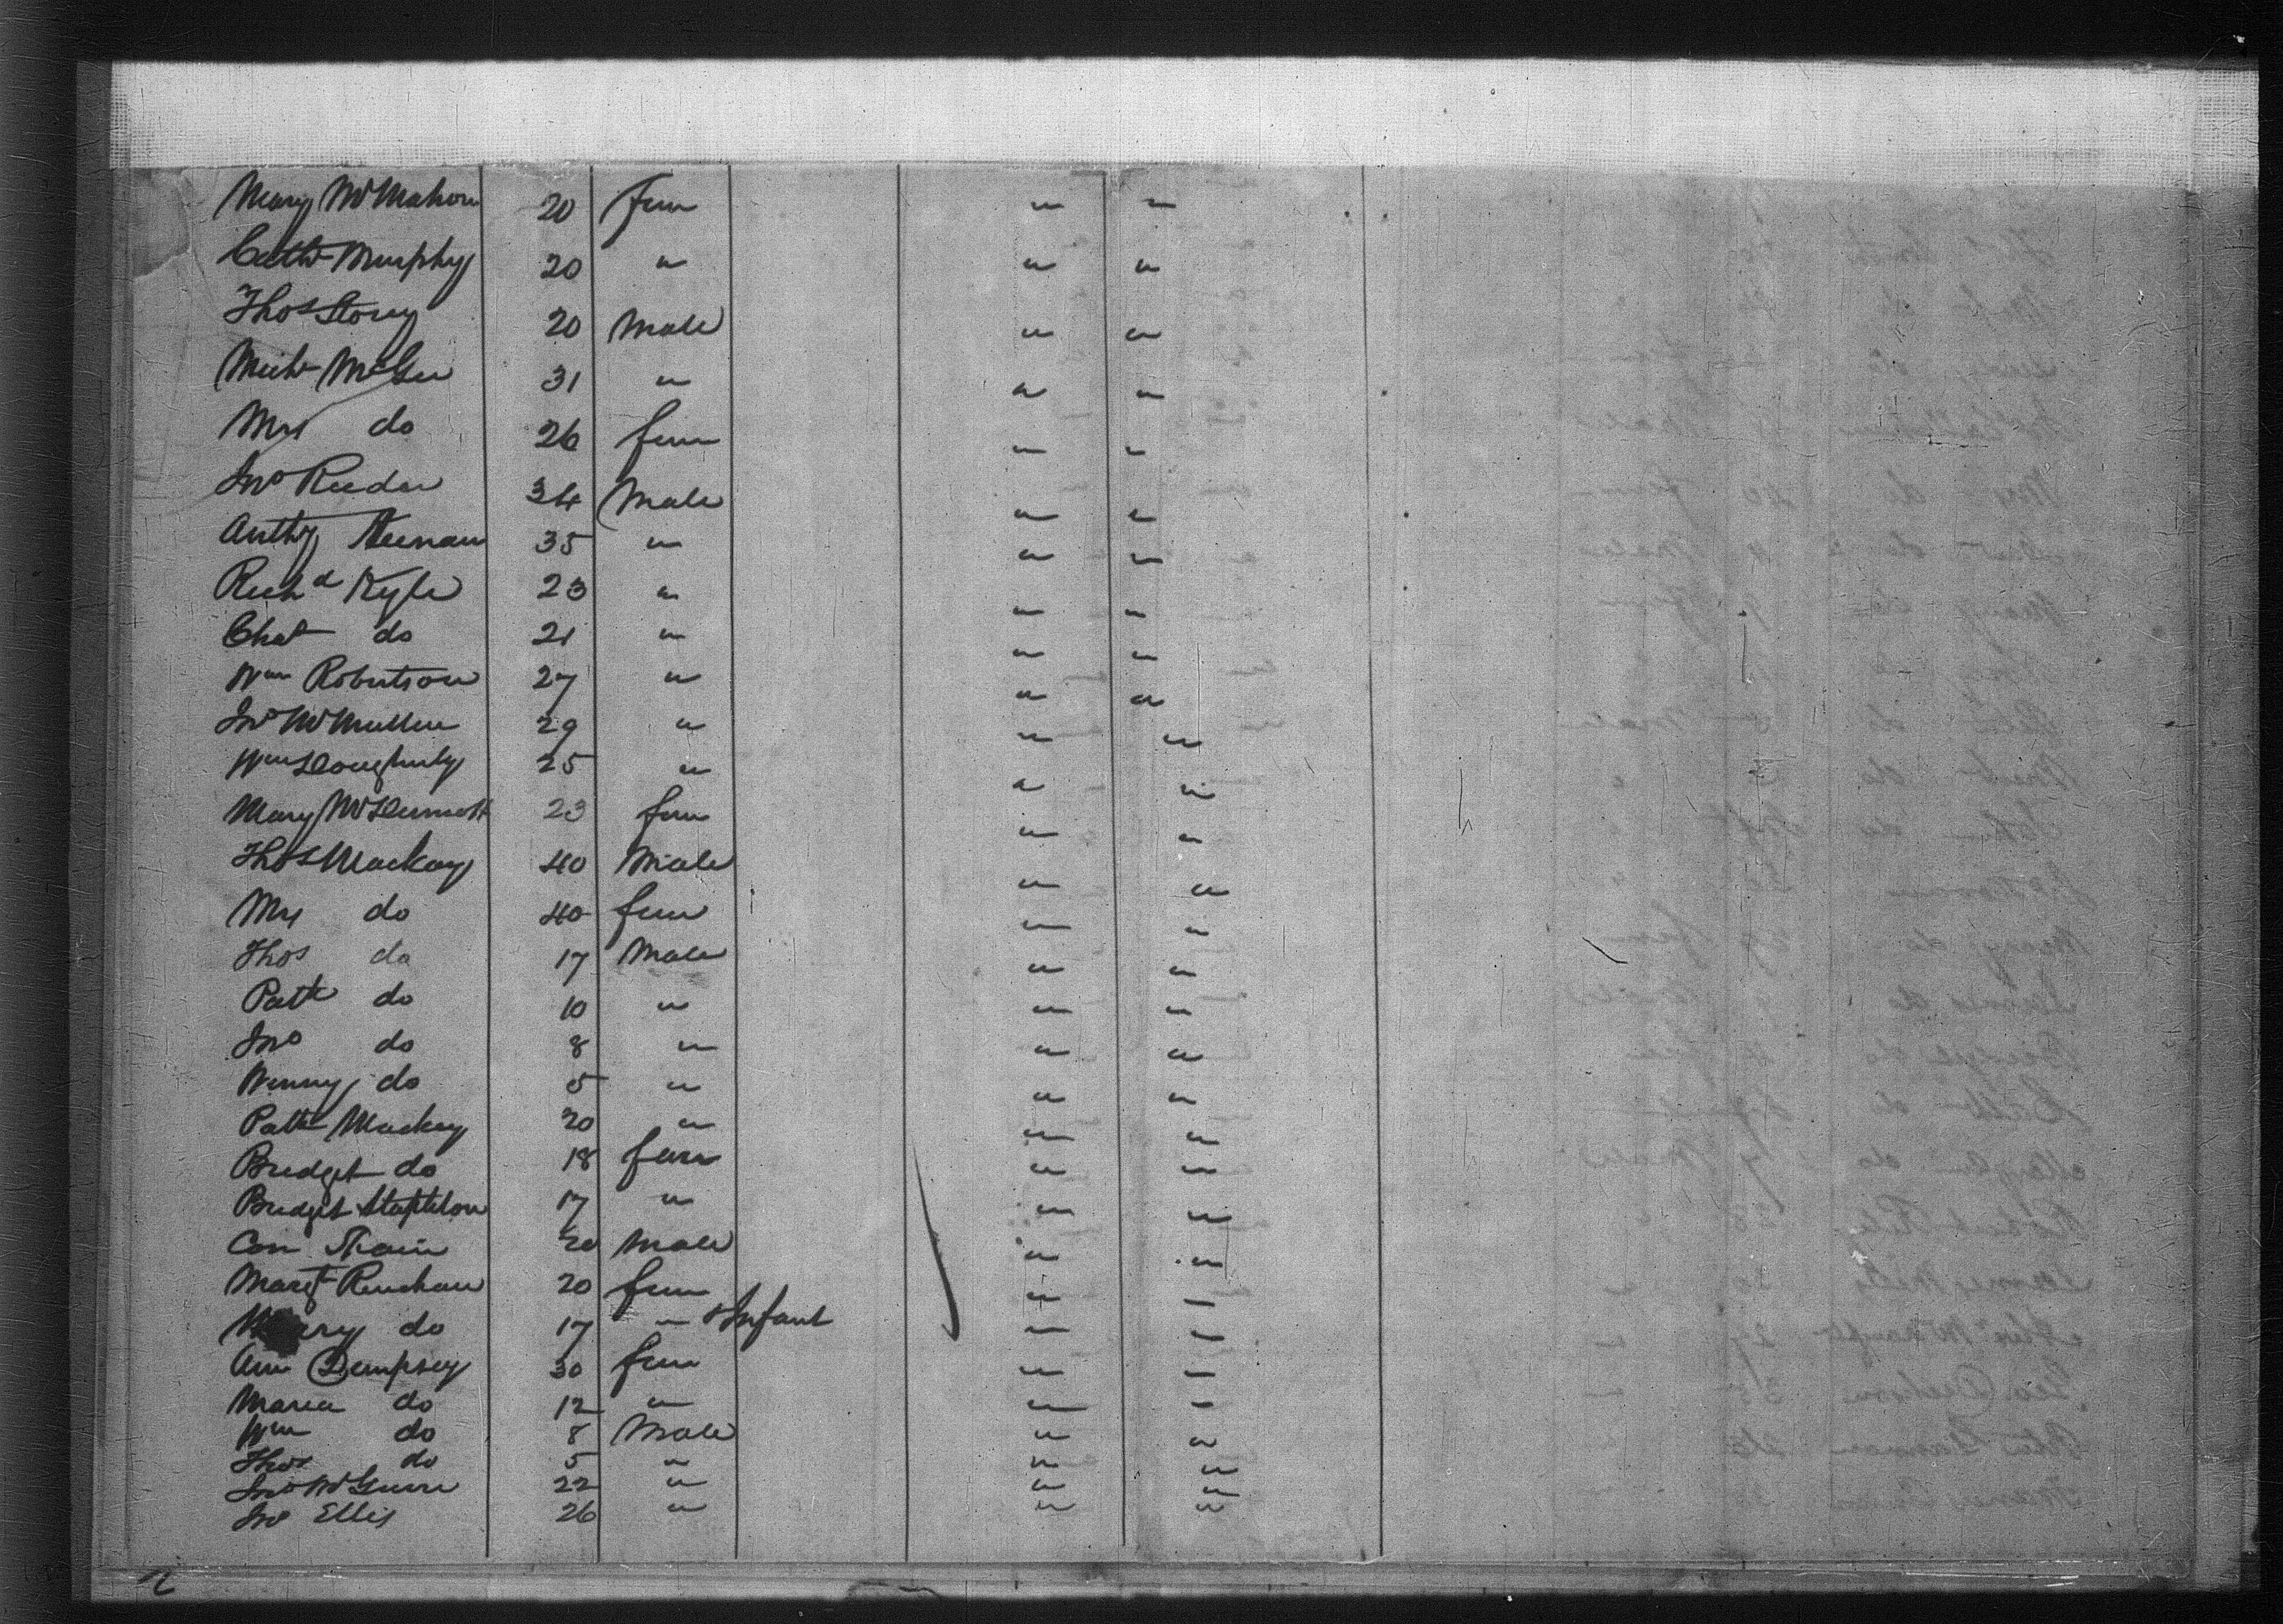 Mary McMahon 20 fem " "
Cath Murphy 20 " " "
Thos Story 20 Male " "
Mich McGee 31 " " "
Mrs do 26 fem " "
Jno Reeder 34 Male " "
Anthy 35 " " "
Richd Kyle 23 " " "
Chas do 21 " " "
Wm Robertson 27 " " "
Jno McMullen 29 " " "
Wm Dougherty 25 " " "
Mary McDermott 23 fem " "
Thos Mackay 40 Male " "
Mrs do 40 fem " "
Thos do 17 Male " "
Patk do 10 " " "
Jno do 8 " " "
Winny do 5 " " "
Patk Mackey 20 " " "
Bridget do 18 fem " "
Bridget Stapleton 17 " " "
Con 20 Male " "
Margt Renehan 20 fem " "
Mary do 17 " & Infant " "
Ann Dempsey 30 fem " "
Maria do 12 " " "
Wm do 8 Male " "
Thos do 5 " " "
Jno 22 " " "
Jno Ellis 26 " " "